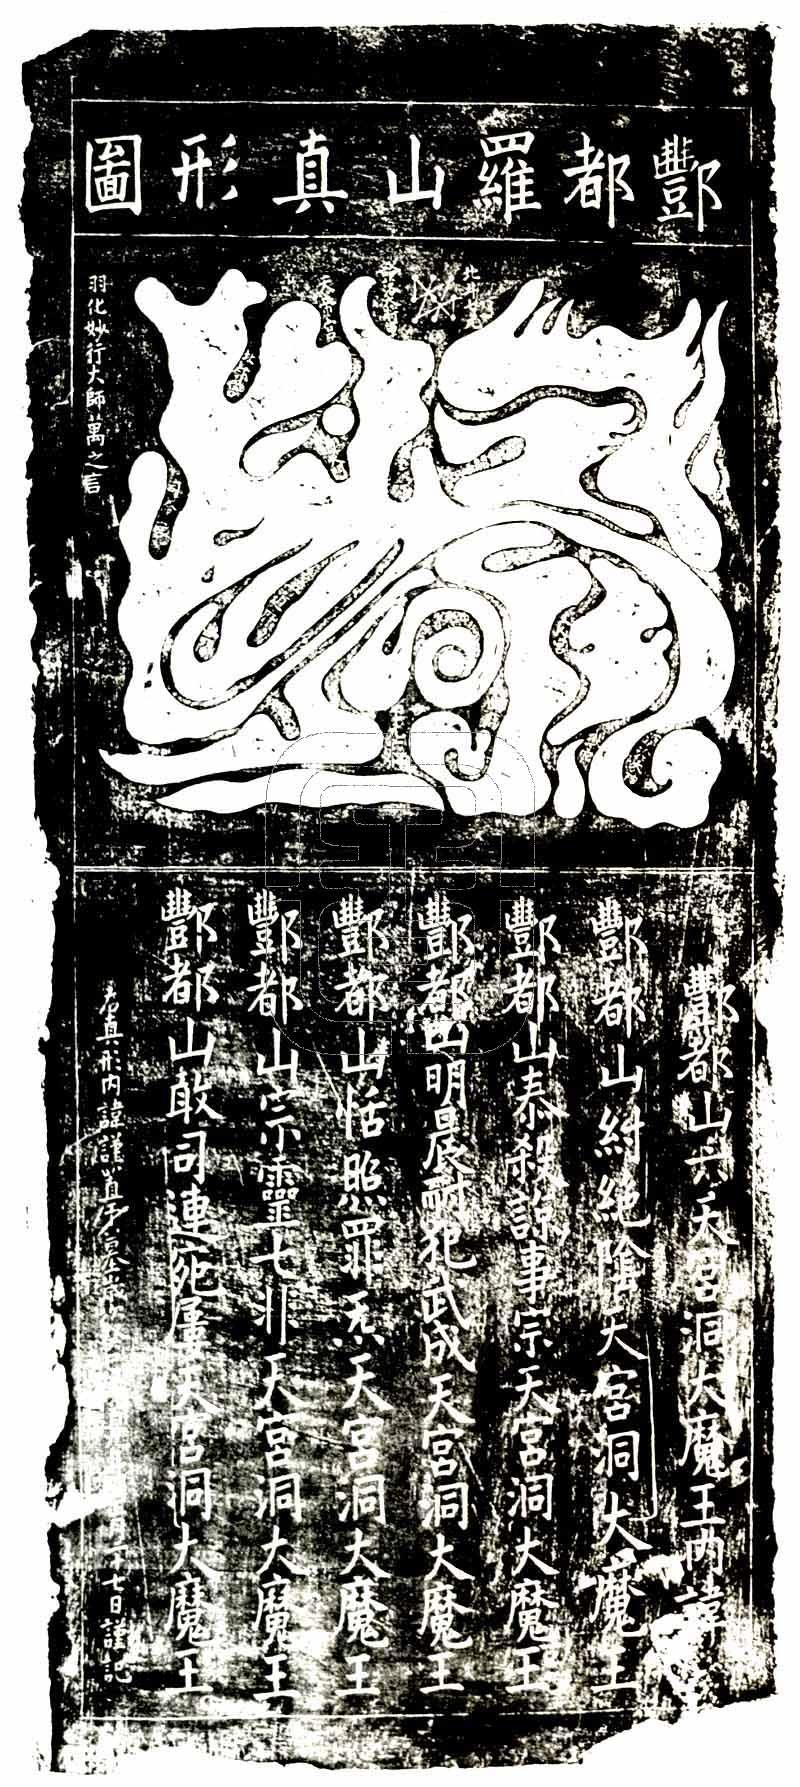 酆都羅山真形圖
北斗
羽化妙行大師萬之言
酆都山六天宮洞大魔王內諱
酆都山紂絕陰天宮洞大魔王
酆都山泰殺諒事宗天宮洞大魔王
酆都山明晨耐犯武成天宮洞大魔王
酆都山恬照罪炁天宮洞大魔王
酆都山宗靈七非天宮洞大魔王
酆都山敢司連宛屢天宮洞大魔王
真形內諱謹
月二十七日謹記